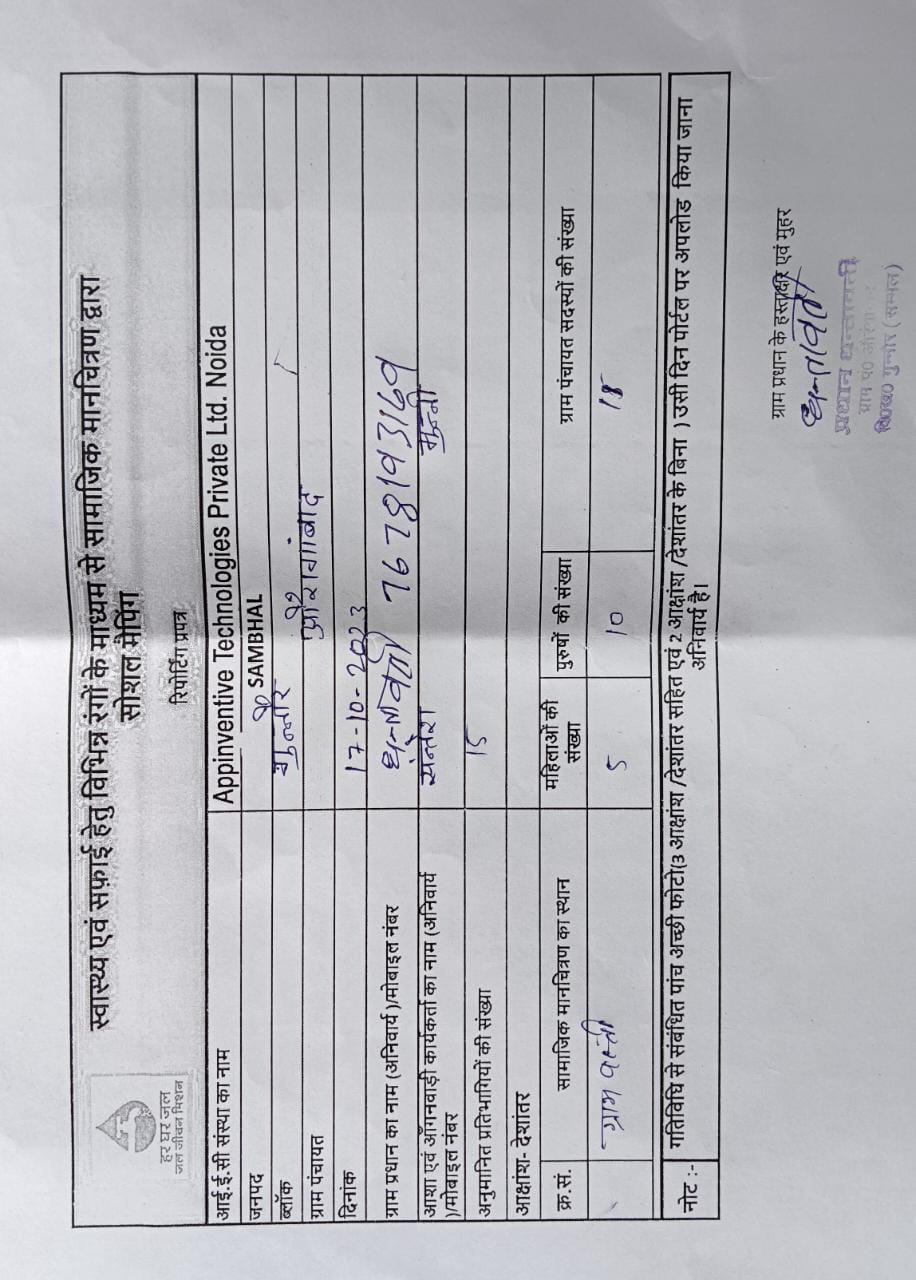 हर घर जल
जल जीवन मिशन
स्वास्थ्य एवं सफ़ाई हेतु विभिन्न रंगों के माध्यम से सामाजिक मानचित्रण द्वारा
सोशल मैपिंग
रिपोर्टिंग प्रपत्र
आई.ई.सी संस्था का नाम Appinventive Technologies Private Ltd. Noida
जनपद SAMBHAL
ब्लॉक गुन्नौर
ग्राम पंचायत औरंगाबाद
दिनांक 17-10-2023
ग्राम प्रधान का नाम (अनिवार्य )/मोबाइल नंबर धनवती 7678193169
आशा एवं आँगनवाड़ी कार्यकर्ता का नाम (अनिवार्य सन्तेश मुन्नी
)/मोबाइल नंबर
अनुमानित प्रतिभागियों की संख्या 15
आक्षांश- देशांतर
क्र.सं. सामाजिक मानचित्रण का स्थान महिलाओं की संख्या पुरुषों की संख्या ग्राम पंचायत सदस्यों की संख्या
ग्राम वस्ती 5 10 15
नोट :- गतिविधि से संबंधित पांच अच्छी फोटो(3 आक्षांश /देशांतर सहित एवं 2 आक्षांश /देशांतर के बिना ) उसी दिन पोर्टल पर अपलोड किया जाना
अनिवार्य है।
ग्राम प्रधान के हस्ताक्षर एवं मुहर
धनवती
प्रधान धनवती
ग्राम पं०
वि०ख० गुन्नौर (सम्भल)